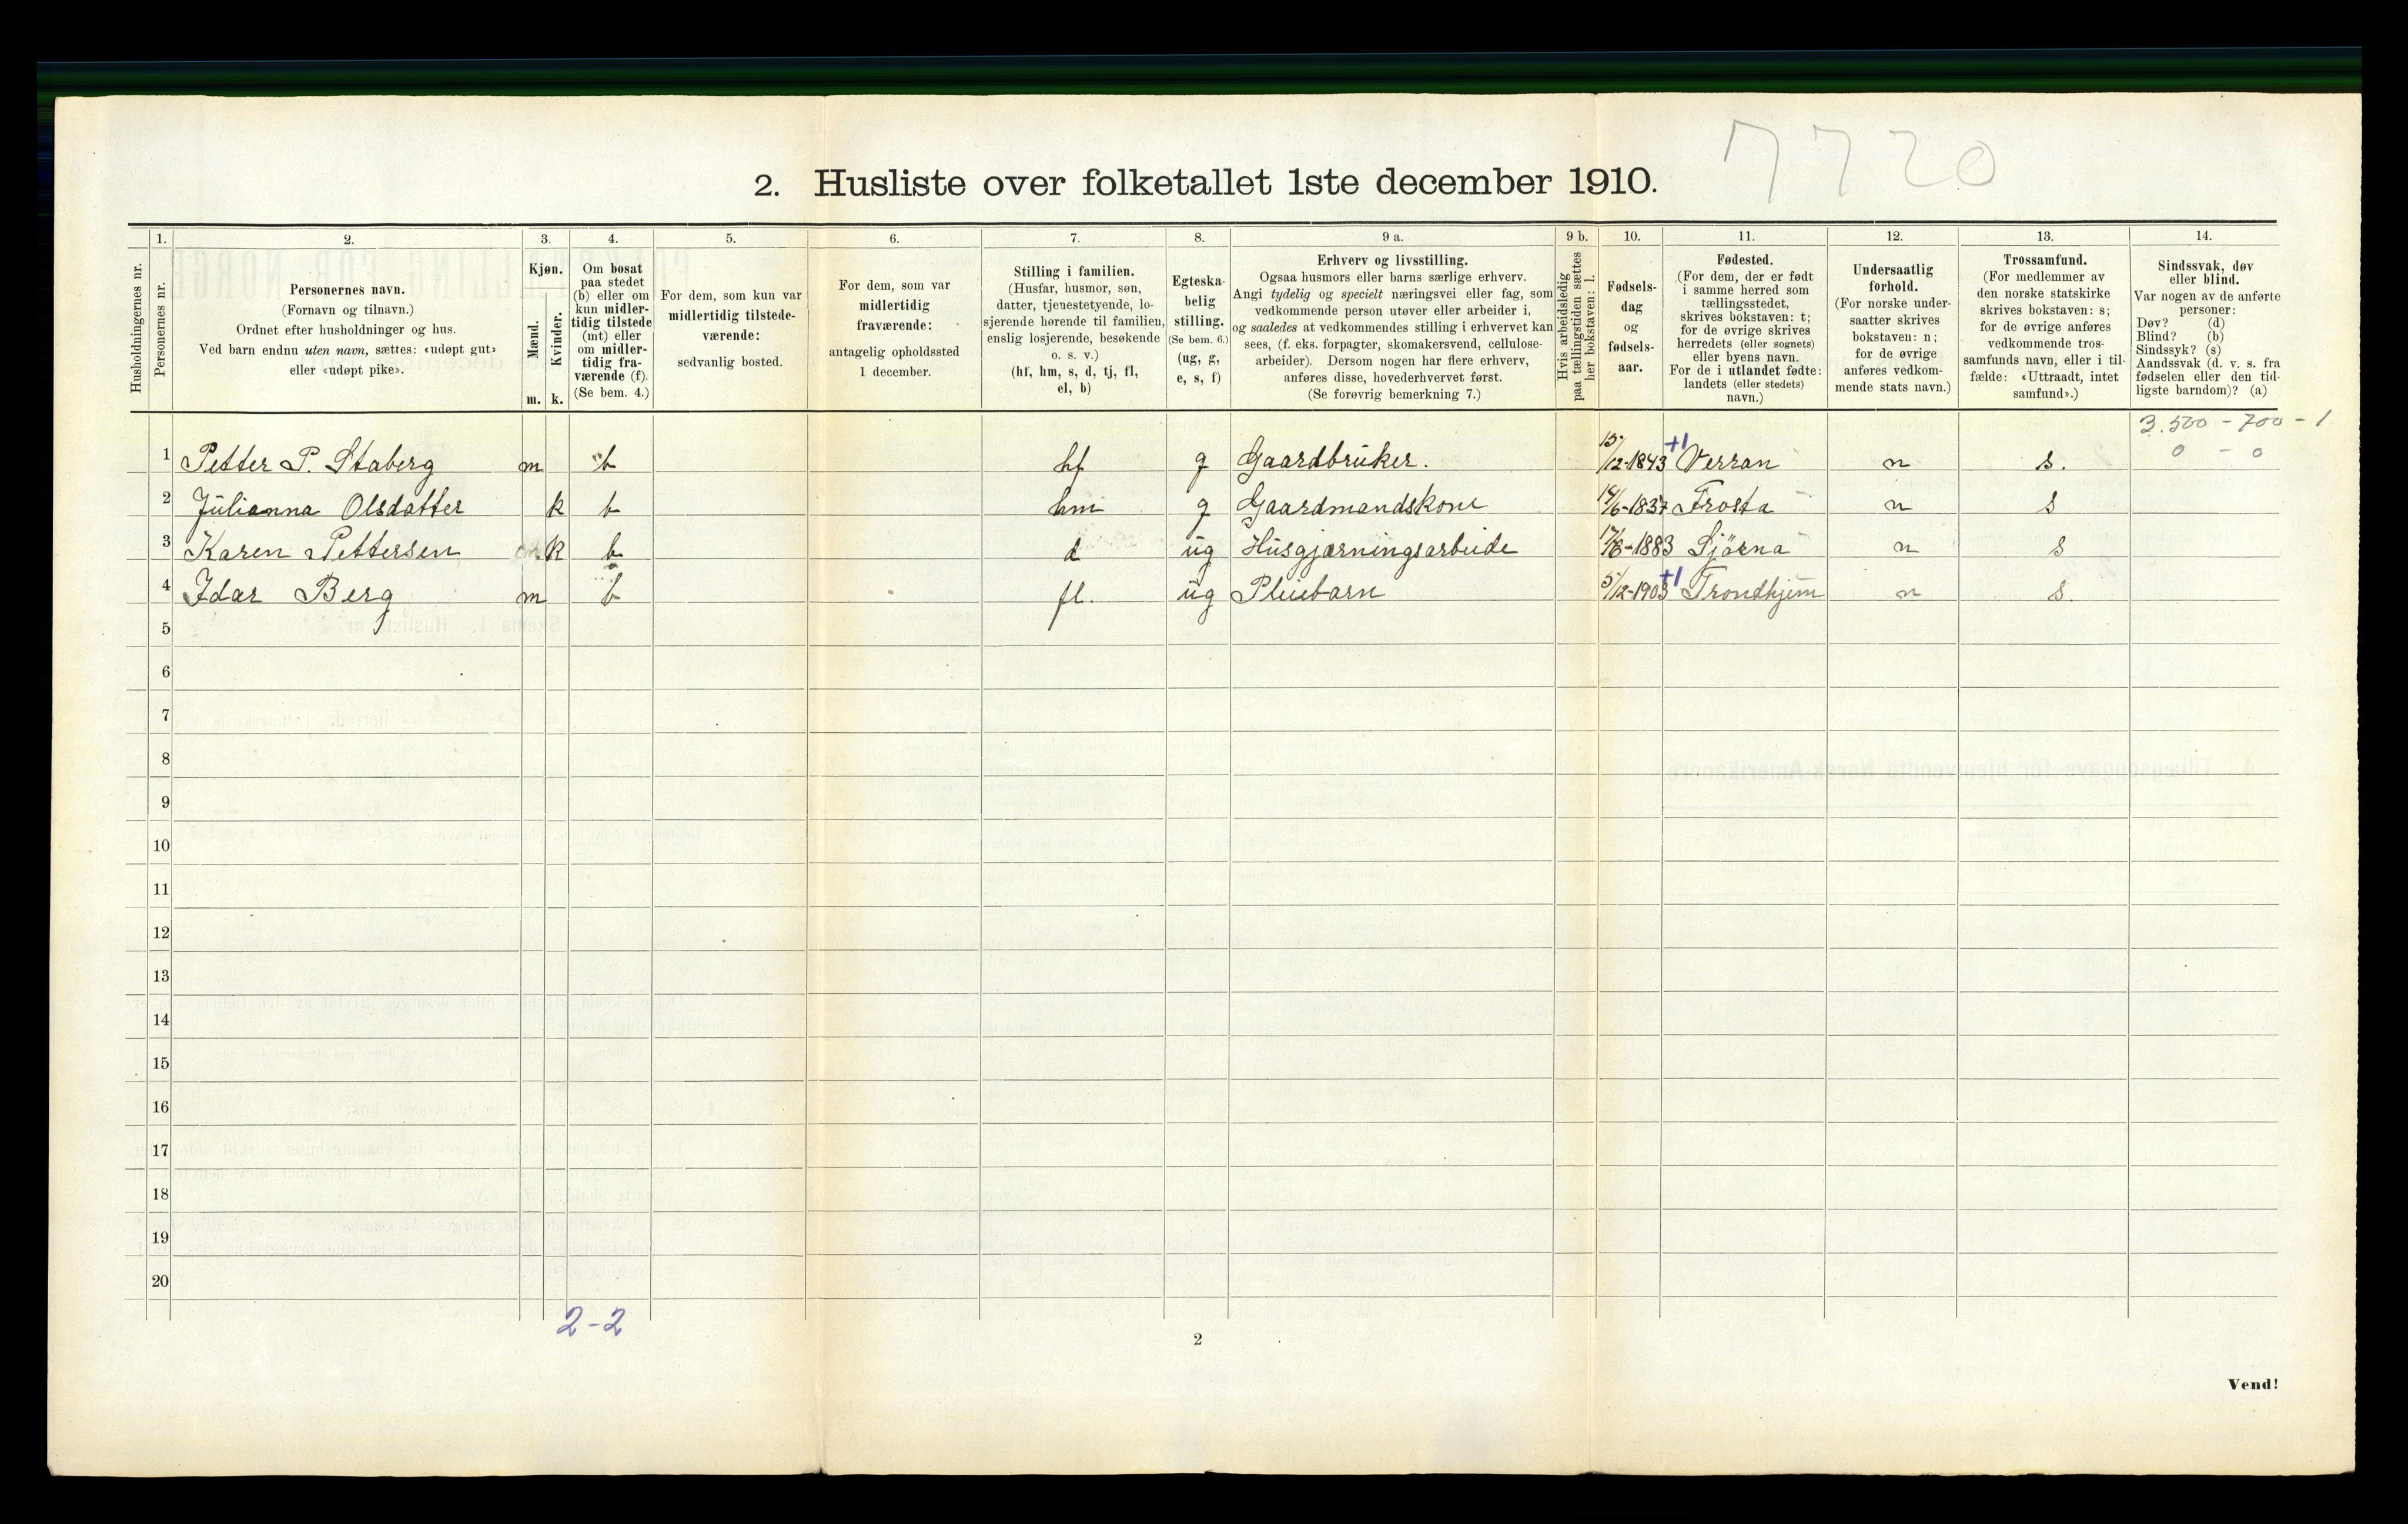 7720
2. Husliste over folketallet 1ste december 1910.
Husholdningernes nr.
1.
Personernes nr.
2.
Personernes navn.
(Fornavn og tilnavn.)
Ordnet efter husholdninger og hus.
Ved barn endnu uten navn, sættes: «udøpt gut»
eller «udøpt pike».
3.
Kjøn.
Mænd.
Kvinder.
m. k.
4.
Om bosat
paa stedet
(b) eller om
kun midler-
tidig tilstede
(mt) eller
om midler-
tidig fra-
værende (f).
(Se bem. 4.)
5.
For dem, som kun var
midlertidig tilstede-
værende:
sedvanlig bosted.
6.
For dem, som var
midlertidig
fraværende:
antagelig opholdssted
1 december.
7.
Stilling i familien.
(Husfar, husmor, søn,
datter, tjenestetyende, lo-
sjerende hørende til familien,
enslig losjerende, besøkende
o. s. v.)
(hf, hm, s, d, tj, fl,
el, b)
8.
Egteska-
belig
stilling.
(Se bem. 6.)
(ug, g,
e, s, f)
9 a.
Erhverv og livsstilling.
Ogsaa husmors eller barns særlige erhverv.
Angi tydelig og specielt næringsvei eller fag, som
vedkommende person utøver eller arbeider i,
og saaledes at vedkommendes stilling i erhvervet kan
sees, (f. eks. forpagter, skomakersvend, cellulose-
arbeider). Dersom nogen har flere erhverv,
anføres disse, hovederhvervet først.
(Se forøvrig bemerkning 7.)
9 b.
Hvis arbeidsledig
paa tællingstiden sættes
her bokstaven: l.
10.
Fødsels-
dag
og
fødsels-
aar.
11.
Fødested.
(For dem, der er født
i samme herred som
tællingsstedet,
skrives bokstaven: t;
for de øvrige skrives
herredets (eller sognets)
eller byens navn.
For de i utlandet fødte:
landets (eller stedets)
navn.)
12.
Undersaatlig
forhold.
(For norske under-
saatter skrives
bokstaven: n;
for de øvrige
anføres vedkom-
mende stats navn.)
13.
Trossamfund.
(For medlemmer av
den norske statskirke
skrives bokstaven: s;
for de øvrige anføres
vedkommende tros-
samfunds navn, eller i til-
fælde: «Uttraadt, intet
samfund».)
14.
Sindssvak, døv
eller blind.
Var nogen av de anførte
personer:
Døv? (d)
Blind? (b)
Sindssyk? (s)
Aandssvak (d. v. s. fra
fødselen eller den tid-
ligste barndom)? (a)
3.500 - 700 - 1
0 - 0
1 Petter P. Staberg m b hf g Gaardbruker. 15/12-1843 +1 Verran n s.
2 Julianna Olsdatter k b hm g Gaardmandskone 14/6-1837 Frosta n s
3 Karen Pettersen k b d ug Husgjærningsarbeide 17/8-1883 Sjörna n s
4 Idar Berg m b fl. ug Pleiebarn 5/12-1903 +1 Trondhjem n s.
5
6
7
8
9
10
11
12
13
14
15
16
17
18
19
20
2-2
2
Vend!